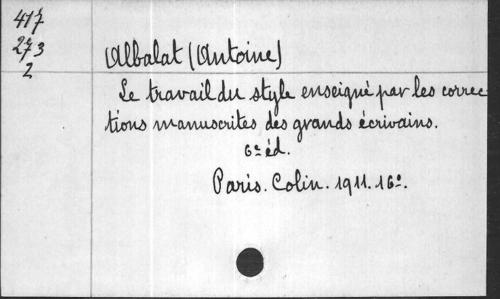 417
273
2
Albalat (Antoine)
Le travail du style enseigné par les correc-
tions manuscrites des grands écrivains.
6e éd.
Paris. Colin. 1911. 16o.